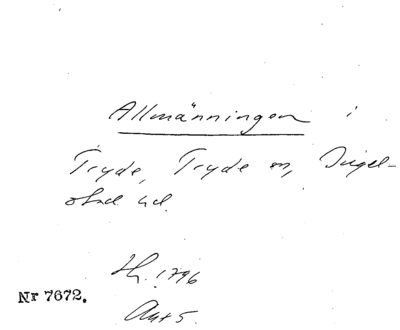 Allmänningen i
Tryde, Tryde sn, Ingel-
stad hd.
Hh. 1796
Akt 5.
Nr 7672.